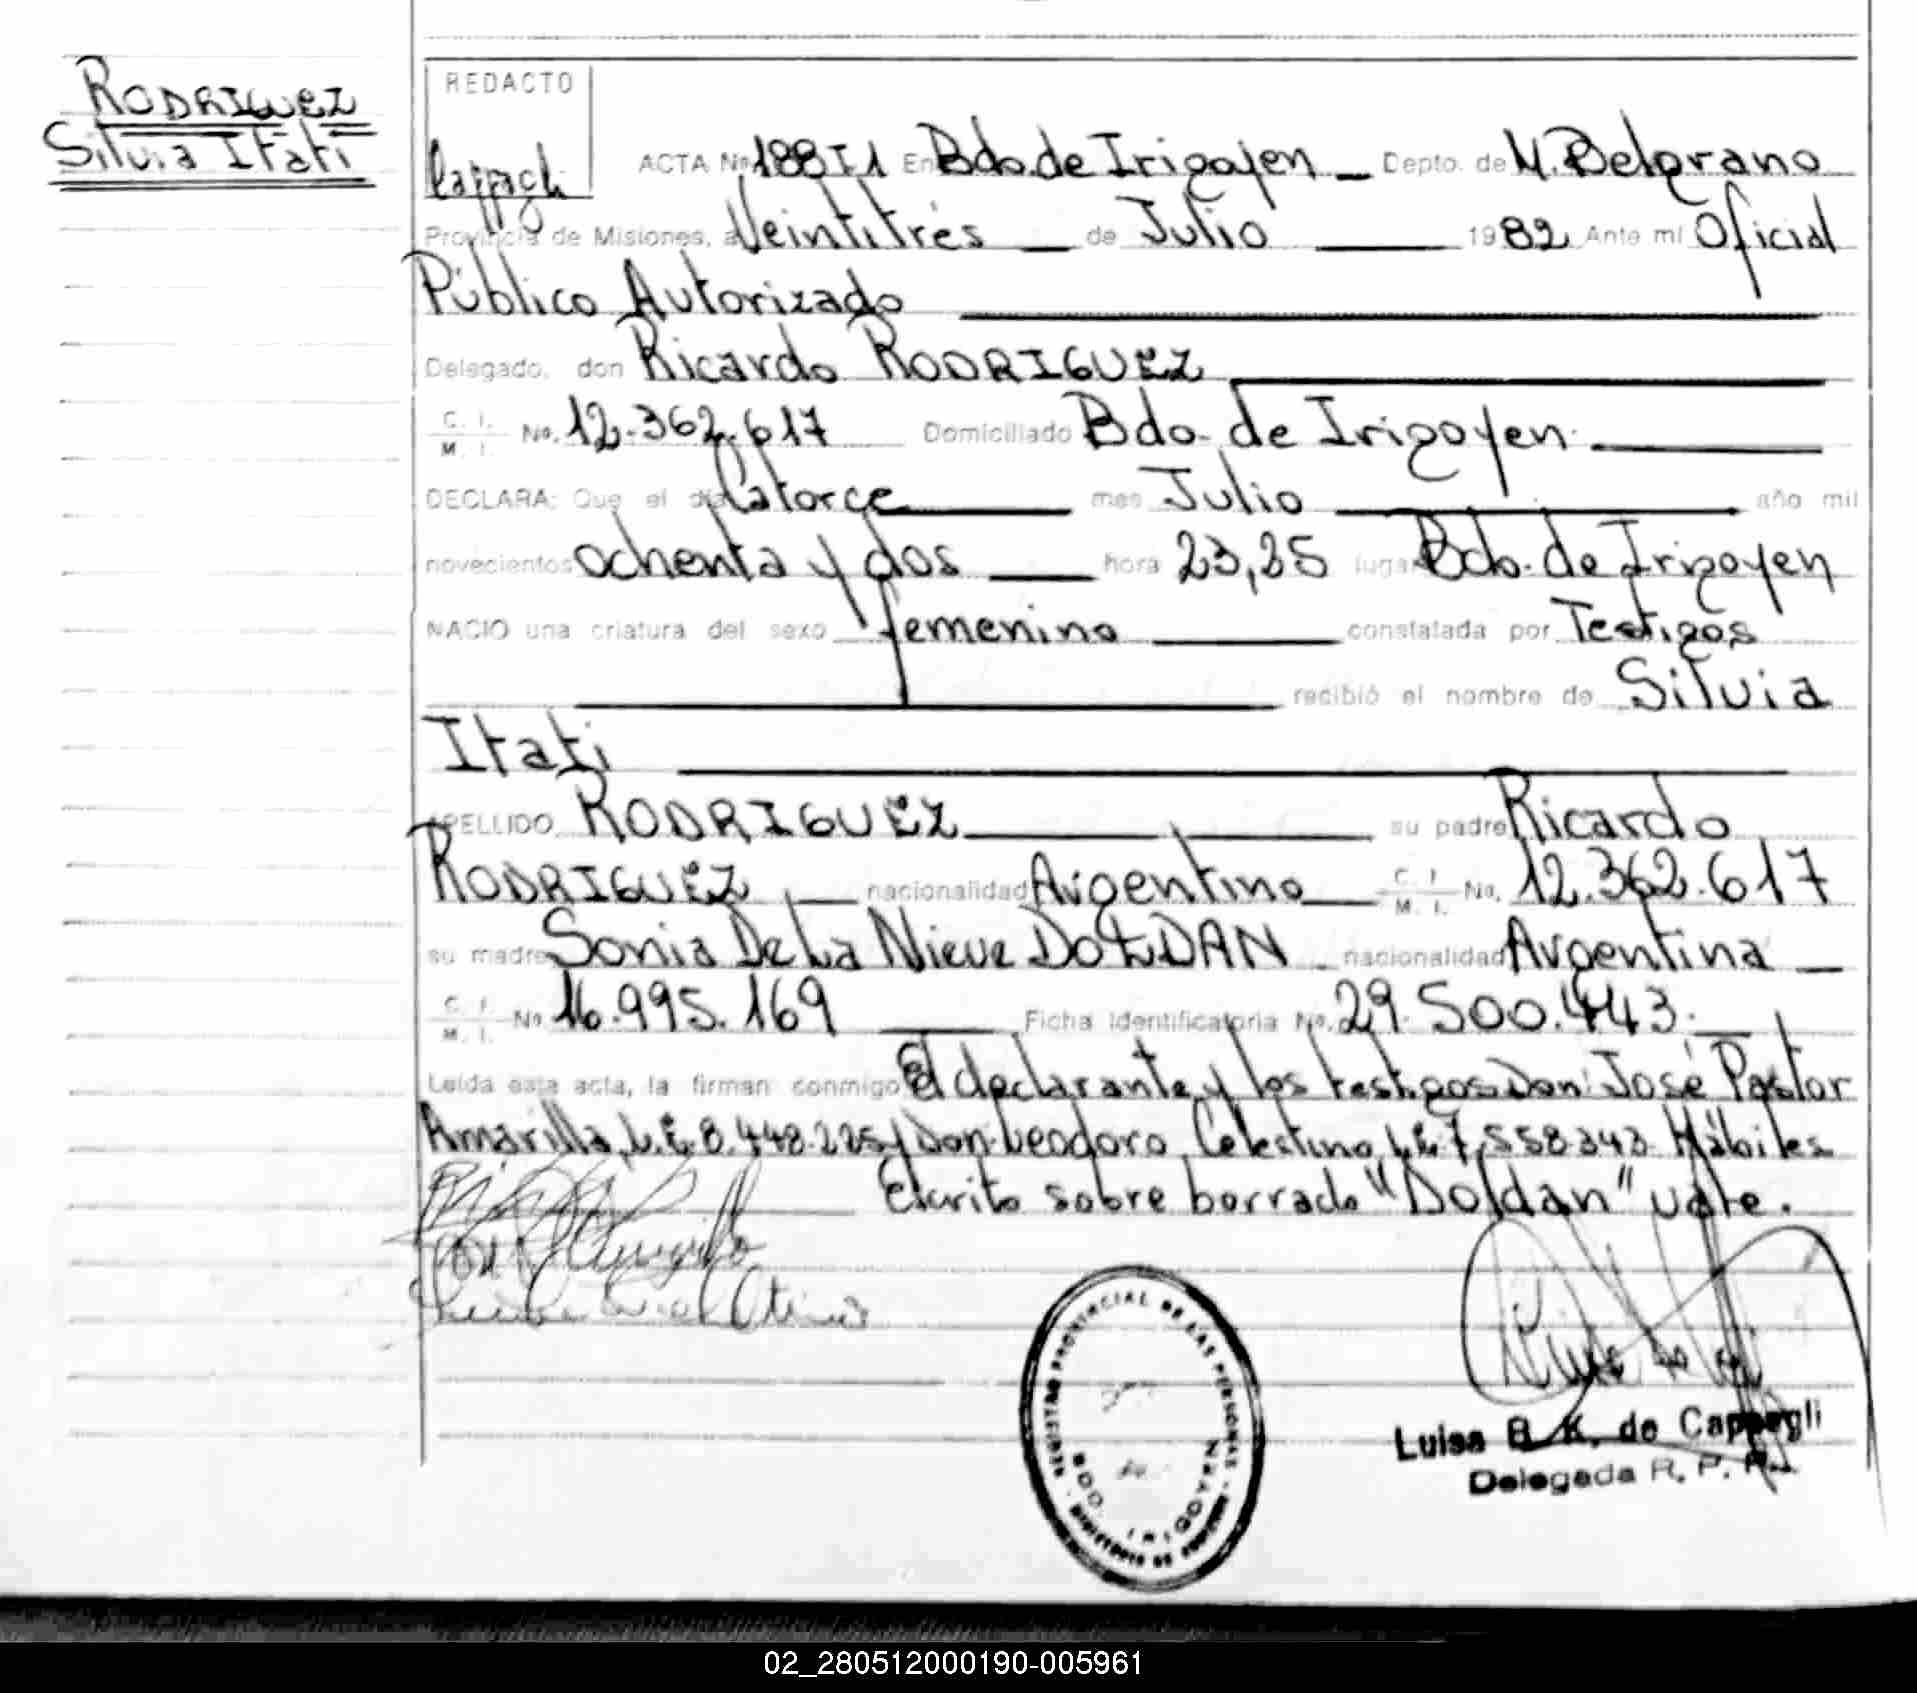 RODRIGUEZ
Silvia Itati
REDACTO
Cappagli
ACTA No. 188 T1 En Bdo. de Irigoyen Depto. de M. Belgrano
Provincia de Misiones, a Veintitrés de Julio 1982 Ante mi Oficial
Público Autorizado
Delegado, don Ricardo RODRIGUEZ
C. I. M. I. No. 12.362.617 Domiciliado Bdo. de Irigoyen
DECLARA: Que el día Catorce mes Julio año mil
novecientos ochenta y dos hora 23,25 lugar Bdo. de Irigoyen
NACIO una criatura del sexo femenino constatada por Testigos
recibió el nombre de Silvia
Itati
APELLIDO RODRIGUEZ su padre Ricardo
RODRIGUEZ nacionalidad Argentino C. I. M. I. No. 12.362.617
su madre Sonia De La Nieve DOLDAN nacionalidad Argentina
C. I. M. I. No. 16.995.169 Ficha Identificatoria No. 29.500.443.
Leída esta acta, la firman conmigo El declarante y los testigos Don: José Pastor
Amarilla, L.E. 8.448.225 y Don: Leodoro Celestino L.E. 7.558.343. Hábiles
Escrito sobre borrado "Doldan" vale.
REGISTRO PROVINCIAL DE LAS PERSONAS
BDO. IRIGOYEN
Luisa B. K. de Cappagli
Delegada R. P. P.
02_280512000190-005961